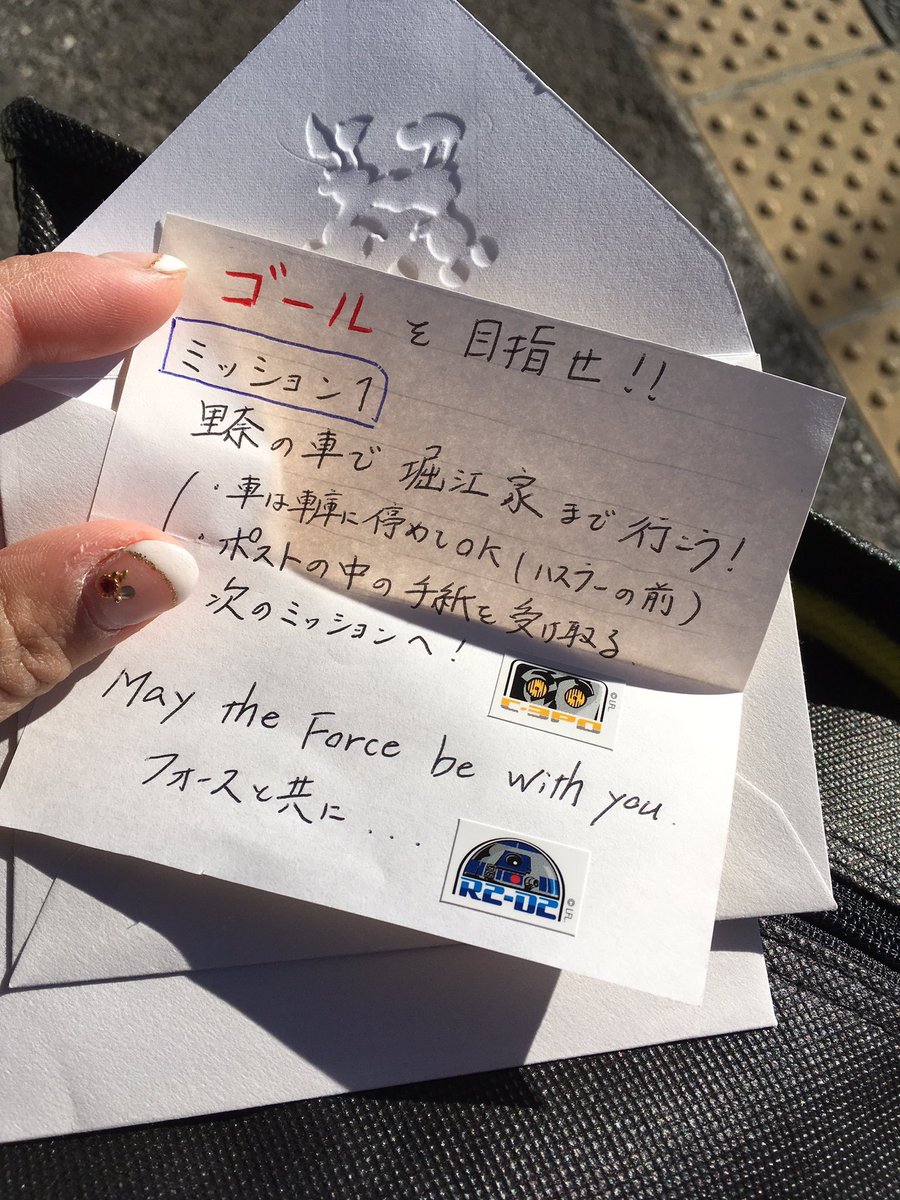 ゴールを目指せ!!
ミッション1
里奈の車で堀江家まで行こう!
・車は車庫に停めてOK(ハスラーの前)
・ポストの中の手紙を受け取る
次のミッションへ!
C-3PO
© LFL
May the Force be with you.
フォースと共に...
R2-D2
© LFL